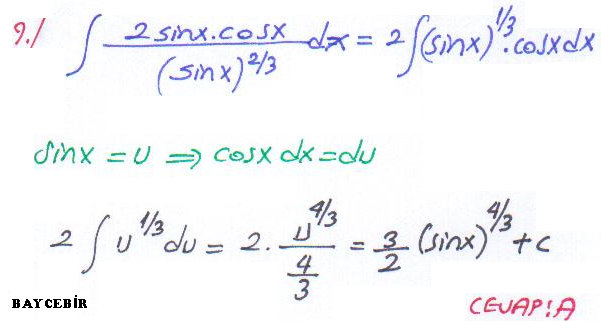 9./ ∫ 2sinx.cosx / (sinx)^2/3 dx = 2∫(sinx)^1/3.cosxdx
sinx = u ⇒ cosx dx = du
2∫u^1/3 du = 2. u^4/3 / 4/3 = 3/2 (sinx)^4/3 + c
BAYCEBİR
CEVAP:A